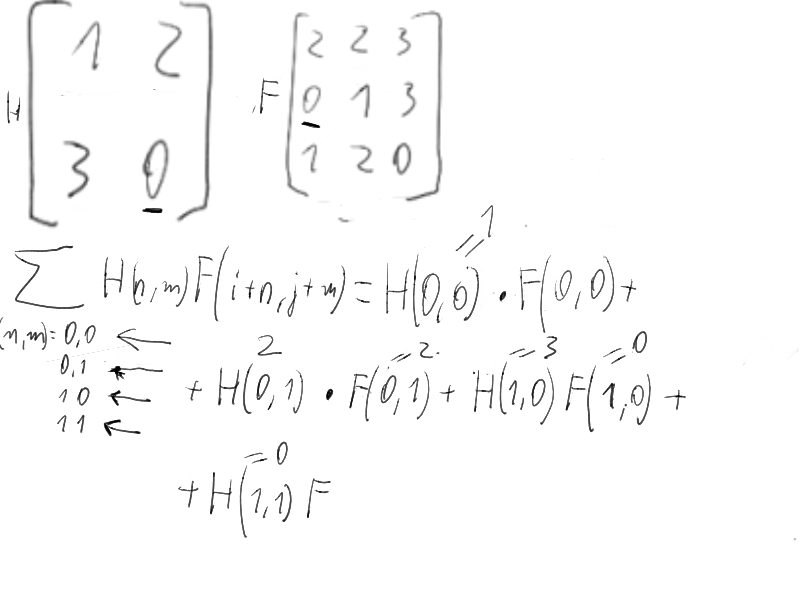 H [1 2
3 0]
F [2 2 3
0 1 3
1 2 0]
=1
∑ H(n,m)F(i+n,j+m)=H(0,0)·F(0,0)+
(n,m)=0,0 ←
0,1 ←
10 ←
11 ←
2 =2 =3 =0
+H(0,1)·F(0,1)+H(1,0)F(1,0)+
=0
+H(1,1)F